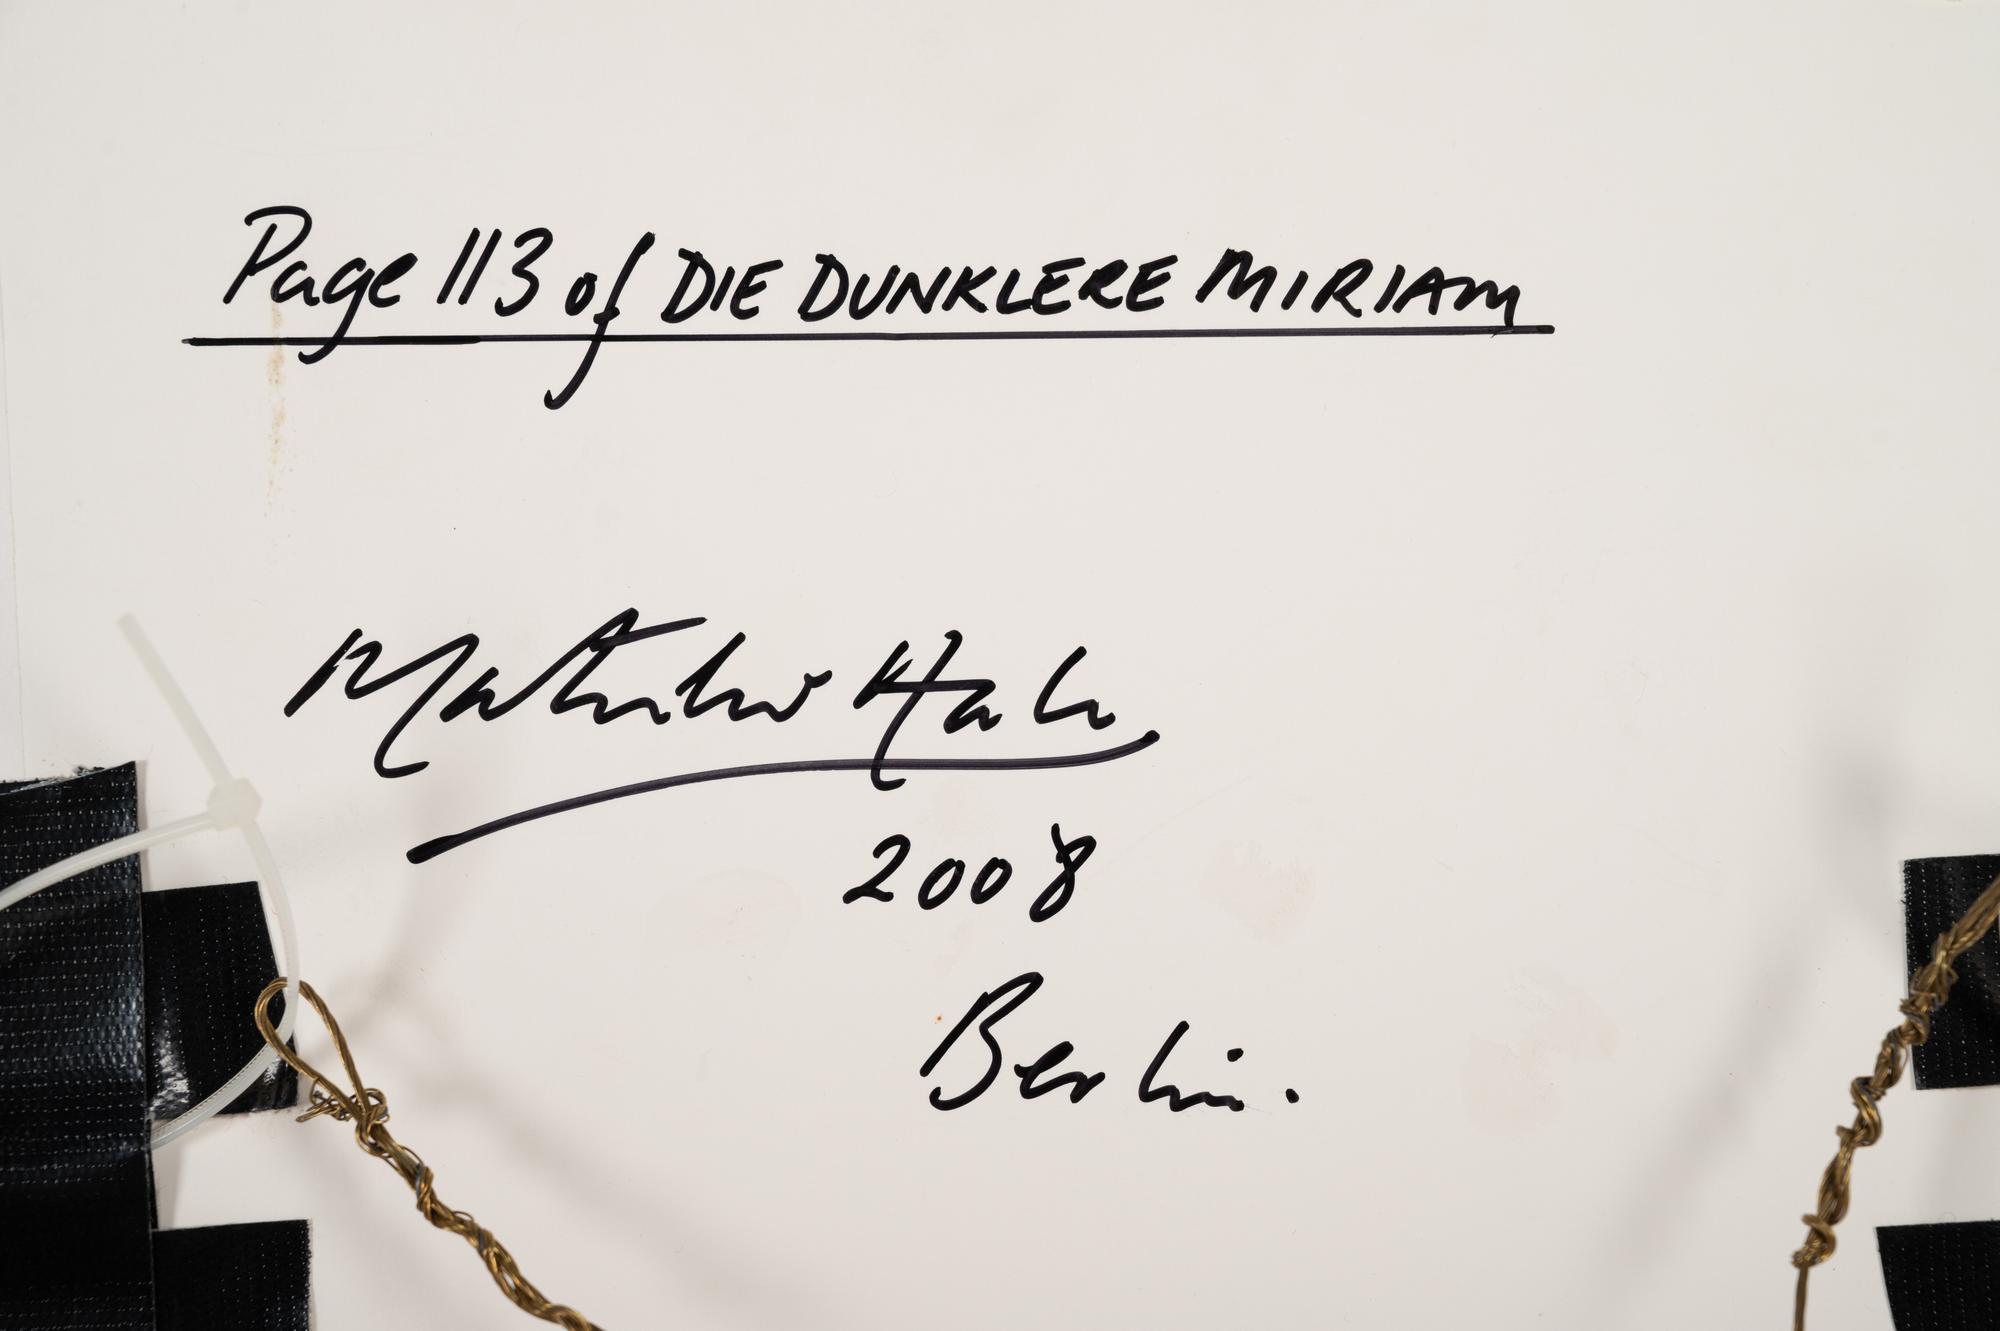 Page 113 of DIE DUNKLERE MIRIAM
Matthew Hale
2008
Berlin.